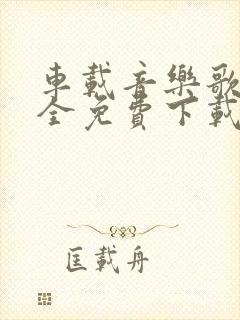 車載音樂歌
全免費下載
匡載舟